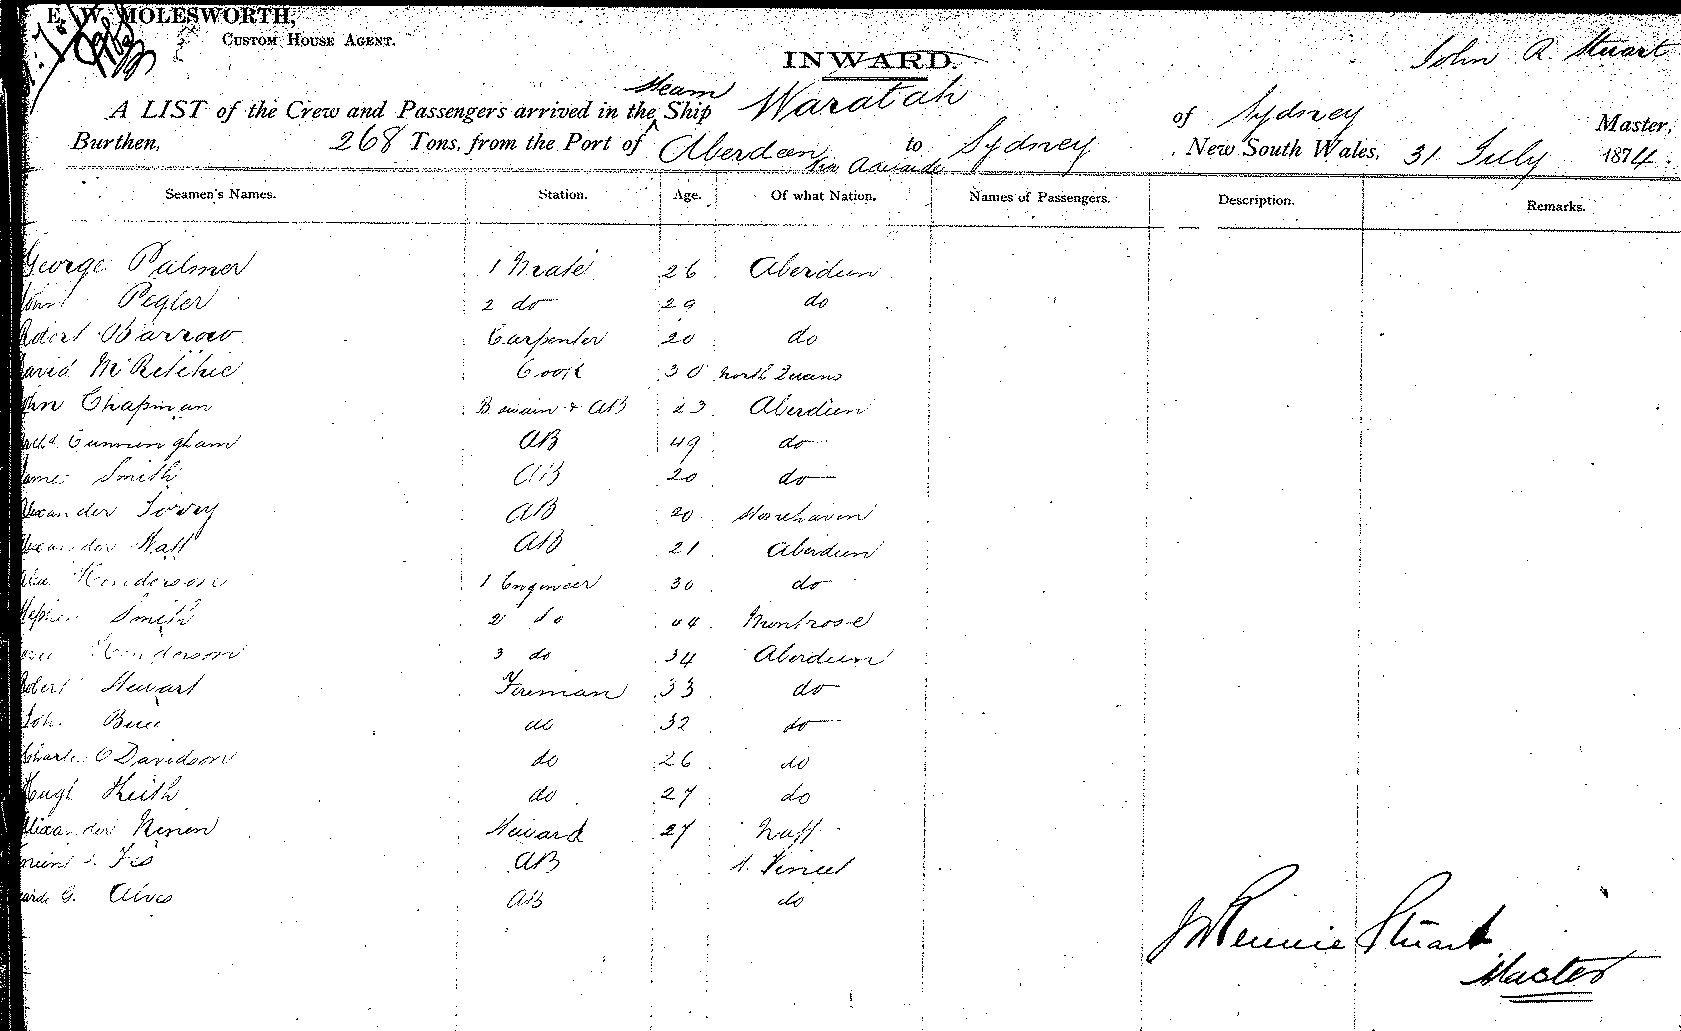 E. W. MOLESWORTH,
CUSTOM HOUSE AGENT.
INWARD.
John R. Stuart
A LIST of the Crew and Passengers arrived in the Steam Ship Waratah of Sydney Master,
Burthen, 268 Tons, from the Port of Aberdeen via Adelaide to Sydney New South Wales, 31 July 1874.
Seamen's Names. Station. Age. Of what Nation. Names of Passengers. Description. Remarks.
George Palmer 1 Mate 26 Aberdeen
John Pegler 2 do 29 do
Robert Barrow Carpenter 20 do
David McRitchie Cook 30 North
John Chapman B swain & AB 23 Aberdeen
Cunningham AB 49 do
James Smith AB 20 do
Alexander AB 20 Stonehaven
Alexander Watt AB 21 Aberdeen
Alex Henderson 1 Engineer 30 do
Stephen Smith 2 do 44 Montrose
Henderson 3 do 34 Aberdeen
Robert Stewart Fireman 33 do
John do 32 do
Charles Davidson do 26 do
Hugh Keith do 27 do
Alexander Steward 27
AB St. Vincent
G. Alves AB do
J Rennie Stuart
Master